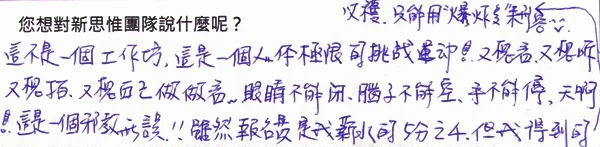 您想對新思惟團隊說什麼呢？
收穫只能用"爆炸"來形容
這不是一個工作坊，這是一個人体極限的挑战運动！又想看、又想听
又想拍、又想自己做做看~ 眼睛不能闭、腦子不能空、手不能停，天啊
！這是一個邪教無誤!! 雖然報名費是我薪水的5分之4，但我得到的